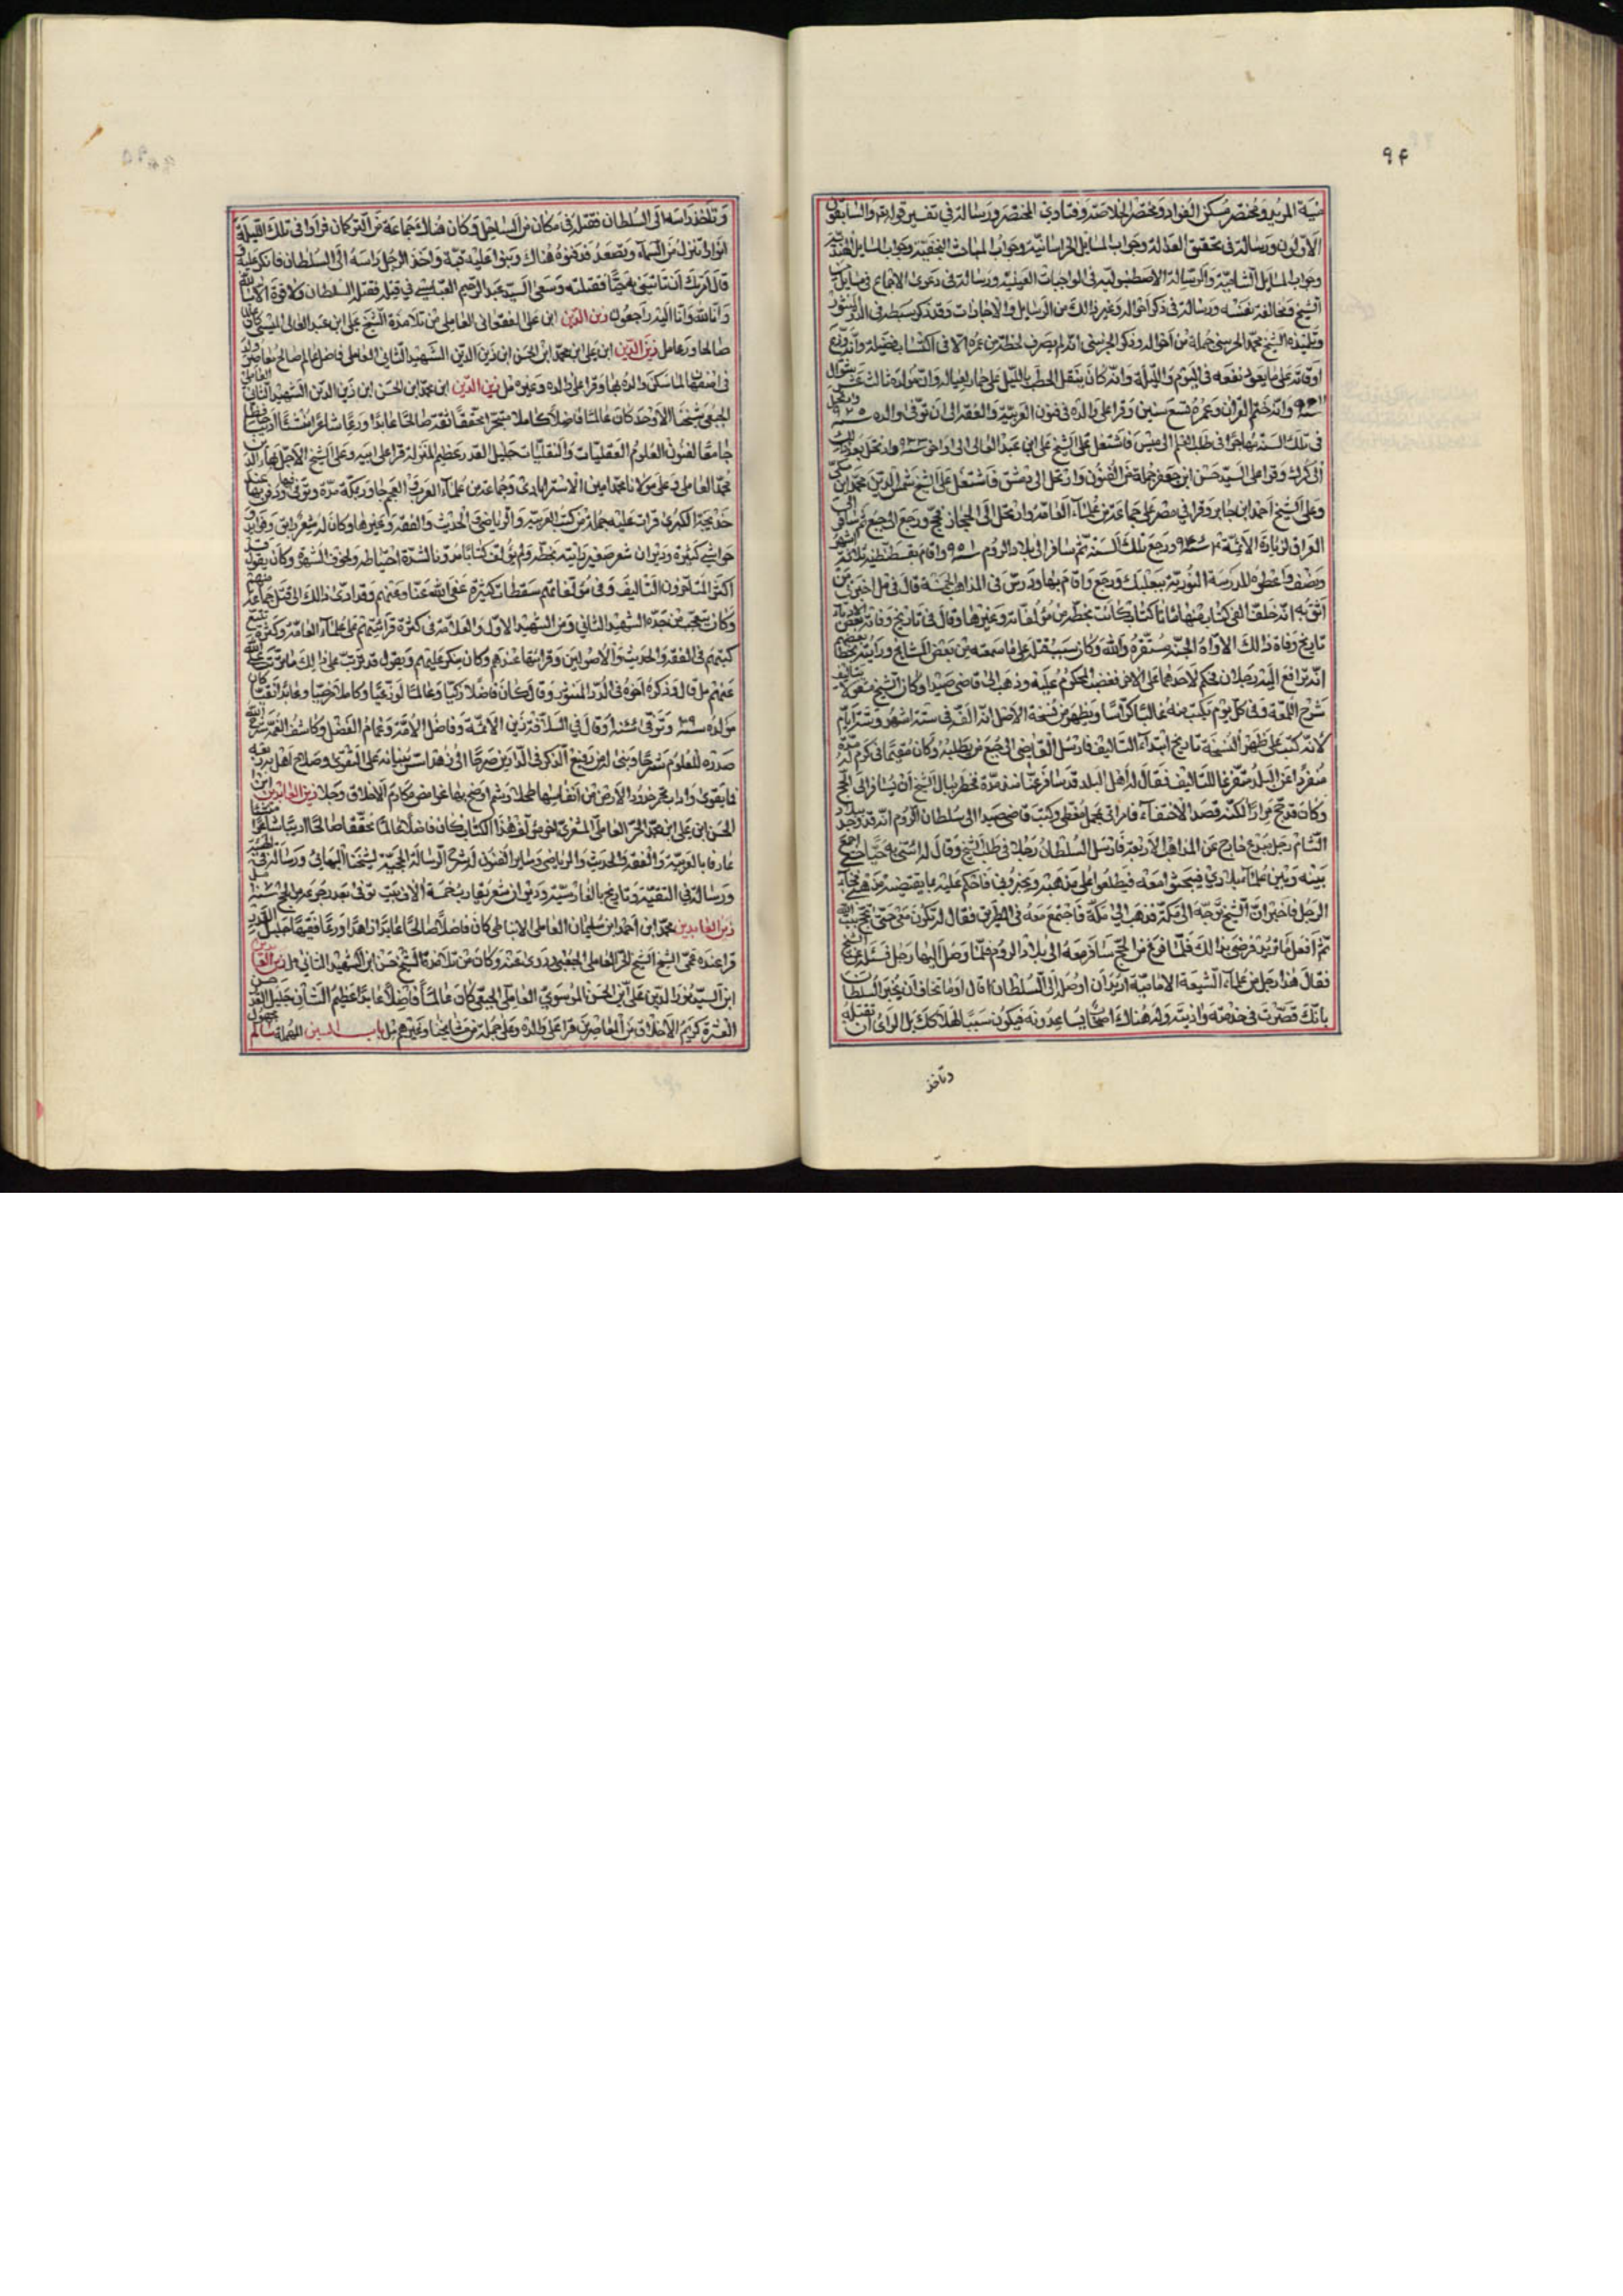 ٩۴
منية المريد ومختصر مسكن الفواد ومختصر الخلاصة وفتاوى المختصر ورسالة في تفسير قوله تع والسابقون
الاولون ورسالة في تحقيق العدالة وجواب المسايل الخراسانية وجواب المباحث النجفية وجواب المسايل الهندية
وجواب المسايل الشامية والرسالة الاصطنبولية في الواجبات العينية ورسالة في دعوى الاجماع في مسايل من
الشيخ ومخالفة نفسه ورسالة في ذكر احواله وغير ذلك من الرسايل والاجازات وقد ذكر سبطه في الدر المنثور
وتلميذه الشيخ محمد جملة من احواله وذكر انه لم يصرف لحظة من عمره الا في اكتساب فضيلة وانه وزع
اوقاته على ما يعود نفعه في اليوم والليلة وانه كان ينقل الحطب بالليل على حمار لعياله وان مولده ثالث عشر شوال
سنة ٩١١ وانه ختم القران وعمره تسع سنين وقرا على والده في فنون العربية والفقه الى ان توفي والده سنة ٩٢٥
في تلك السنة مهاجرا في طلب العلم الى ميس فاشتغل على الشيخ علي ابن عبد العالي الى اواخر سنة ٩٣٣ وارتحل بعد ذلك
الى كرك وقرا على السيد حسن ابن جعفر جملة من الفنون وارتحل الى دمشق فاشتغل على الشيخ شمس الدين محمد ابن مكي
وعلى الشيخ احمد ابن جابر وقرا في مصر على جماعة من علماء العامة وارتحل الى الحجاز فحج ورجع الى جبع ثم سافر الى
العراق لزيارة الائمة ورجع تلك السنة ثم سافر الى بلاد الروم سنة ٩٥١ واقام بقسطنطنية ثلاثة اشهر
ونصف واعطوه المدرسة النورية ببعلبك ورجع واقام بها ودرس في المذاهب الخمسة قال في مل اخبرني من
اثق به انه خلف الفي كتاب منها مائتا كتاب كانت بخطه من مؤلفاته وغيرها وقال في تاريخ وفاته بعض الادباء
تاريخ وفاة ذلك الاواه الجنة مستقره والله وكان سبب قتله على ما سمعته من بعض المشايخ ورايته بخط بعضهم
انه ترافع اليه رجلان فحكم لاحدهما على الاخر فغضب المحكوم عليه وذهب الى قاضي صيدا وكان الشيخ مشغولا بتاليف
شرح اللمعة وفي كل يوم يكتب منه غالبا كراسا ويظهر من نسخة الاصل انه الفه في ستة اشهر وستة ايام
لانه كتب على ظهر النسخة تاريخ ابتداء التاليف فارسل القاضي الى جبع من يطلبه وكان مقيما في كرم له مدة
منفردا عن البلد متفرغا للتاليف فقال له اهل البلد قد سافر عنا منذ مدة فخطر ببال الشيخ ان يسافر الى الحج
وكان قد حج مرارا لكنه قصد الاختفاء فسافر في محمل مغطى وكتب قاضي صيدا الى سلطان الروم انه قد وجد ببلاد
الشام رجل مبدع خارج عن المذاهب الاربعة فارسل السلطان رجلا في طلب الشيخ وقال له ائتني به حيا حتى اجمع
بينه وبين علماء بلادي فيبحثوا معه فيطلعوا على مذهبه ويخبروني فاحكم عليه بما يقتضيه مذهبي فجاء
الرجل فاخبر ان الشيخ توجه الى مكة فذهب الى مكة فاجتمع معه في الطريق فقال له تكون معي حتى نحج بيت الله
ثم افعل ما تريد فرضي بذلك فلما فرغ من الحج سافر معه الى بلاد الروم فلما وصل اليها رجل فسئله عن الشيخ
فقال هذا رجل من علماء الشيعة الامامية اريد ان اوصله الى السلطان قال او ما تخاف ان يخبر السلطان
بانك قصرت في خدمته واذيته وله هناك اصحاب يساعدونه فيكون سببا لهلاكك بل الراي ان تقتله
وتاخذ
وتاخذ راسه الى السلطان فقتله في مكان من الساحل وكان هناك جماعة من التركمان فراوا في تلك الليلة
انوارا تنزل من السماء وتصعد فدفنوه هناك وبنوا عليه قبة واخذ الرجل راسه الى السلطان فانكر عليه و
قال امرتك ان تاتيني به حيا فقتلته وسعى السيد عبد الرحيم العباسي في قتله فقتله السلطان ولا قوة الا بالله
وانا لله وانا اليه راجعون زين الدين ابن علي الفقعاني العاملي من تلامذة الشيخ علي ابن عبد العالي الميسي كان
صالحا ورعا مل زين الدين ابن علي ابن محمد ابن الحسن ابن زين الدين الشهيد الثاني العاملي فاضل عالم صالح معاصر ولد
في اصفهان لما سكن والده بها وقرا على والده وغيره مل زين الدين ابن محمد ابن الحسن ابن زين الدين الشهيد الثاني العاملي
الجبعي شيخنا الاوحد كان عالما فاضلا كاملا متبحرا محققا ثقة صالحا عابدا ورعا شاعرا منشئا اديبا حافظا
جامعا لفنون العلوم العقليات والنقليات جليل القدر عظيم المنزلة قرا على ابيه وعلى الشيخ الاجل بهاء الدين
محمد العاملي وعلى مولانا محمد امين الاسترابادي وجماعة من علماء العرب والعجم جاور بمكة مدة وتوفي بها ودفن عند
خديجة الكبرى قرات عليه جملة من كتب العربية والرياضي والحديث والفقه وغيرها وكان له شعر رايق وفوايد و
حواشي كثيرة وديوان شعر صغير رايته بخطه ولم يؤلف كتابا مدونا لشدة احتياطه ولخوف الشهرة وكان يقول قد
اكثر المتاخرون التاليف وفي مؤلفاتهم سقطات كثيرة عفى الله عنا وعنهم وقد ادى ذلك الى قتل جماعة منهم
وكان يتعجب من جده الشهيد الثاني ومن الشهيد الاول والعلامة في كثرة قرائتهم على علماء العامة وكثرة تتبع
كتبهم في الفقه والحديث والاصولين وقرائتها عندهم وكان ينكر عليهم ويقول قد ترتب على ذلك ما ترتب عفى الله
عنهم مل قال وذكره اخوه في الدر المنثور وقال كان فاضلا زكيا وعالما لوذعيا وكاملا رضيا وعابدا تقيا كان
مولده سنة وتوفي سنة وقال في السلافة زين الائمة وفاضل الامة وغمام الفضل وكاشف الغمة شرح الله
صدره للعلوم شرحا وبنى له من رفيع الذكر في الدارين صرحا الى زهد اسس بنيانه على التقوى وصلاح اهل به ربعه
فما يقوى واداب تحمر خدود الارض من انفاسها خجلا وشيم اوضح بها غوامض مكارم الاخلاق وجلا زين العابدين ابن
الحسن ابن علي ابن محمد الحر العاملي المشغري اخو مؤلف هذا الكتاب كان فاضلا عالما محققا صالحا اديبا شاعرا منشئا
عارفا بالعربية والفقه والحديث والرياضي وساير الفنون له شرح الرسالة الحجية لشيخنا البهائي ورسالة في الهيئة
ورسالة في التقية وتاريخ بالفارسية وديوان شعر يقارب خمسة الاف بيت توفي بعد رجوعه من الحج سنة
زين العابدين محمد ابن احمد ابن سليمان العاملي النباطي كان فاضلا صالحا عابدا زاهدا ورعا فقيها جليل القدر
قرا عنده عمي الشيخ محمد الحر العاملي الجبعي وروى عنه وكان من تلامذة الشيخ حسن ابن الشهيد الثاني مل زين العابدين
ابن السيد نور الدين علي ابن الحسن الموسوي العاملي الجبعي كان عالما فاضلا عابدا عظيم الشان جليل القدر حسن
العشرة كريم الاخلاق من المعاصرين قرا على والده وعلى جملة من مشايخنا وغيرهم مل باب السين المهملة سالم